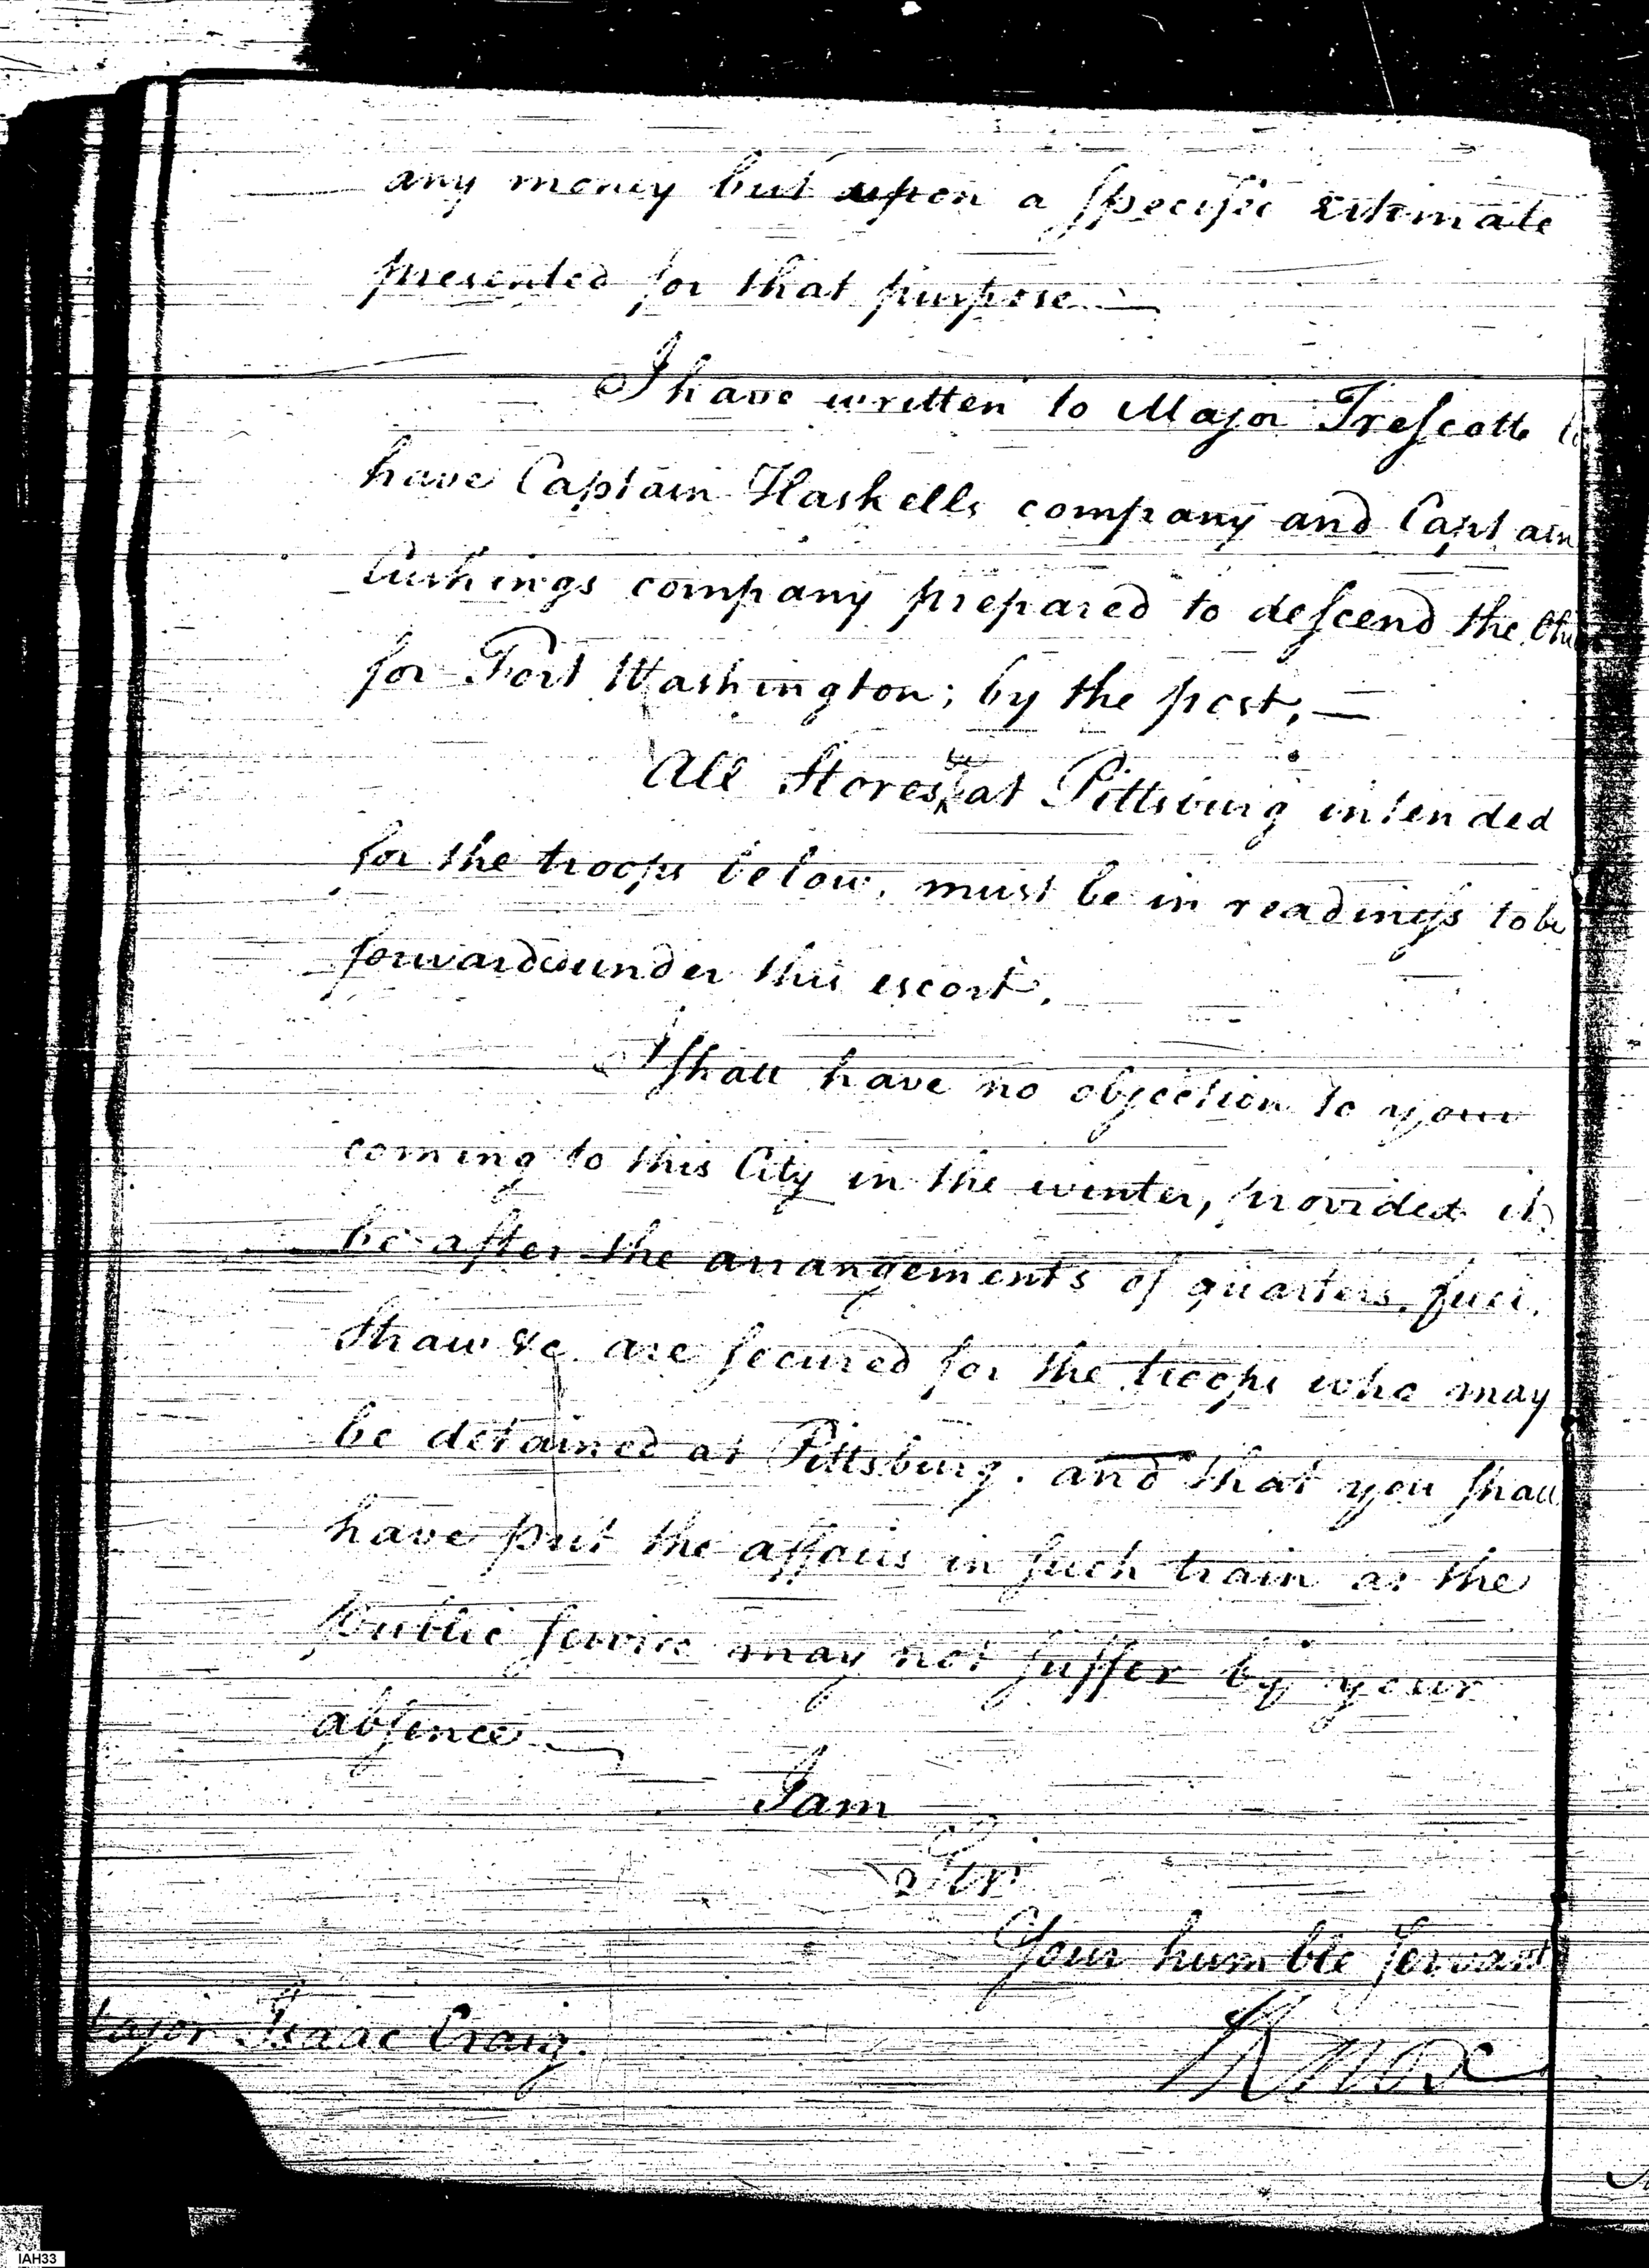 any money but upon a specific Estimate
presented for that purpose.—
I have written to Major Trescott to
have Captain Haskells company and Captain
Cushings company prepared to descend the
for Fort Washington; by the post,—
All Stores at Pittsburg intended
for the troops below, must be in readiness to be
forwarded under this escort.
I shall have no objection to your
coming to this City in the winter, provided it
be after the arrangements of quarters, fuel,
Straw &c. are secured for the troops who may
be detained at Pittsburg. and that you shall
have put the affairs in such train as the
public service may not suffer by your
absence.—
I am
Sir
Your humble servant
Knox
Major Isaac Craig.
IAH33